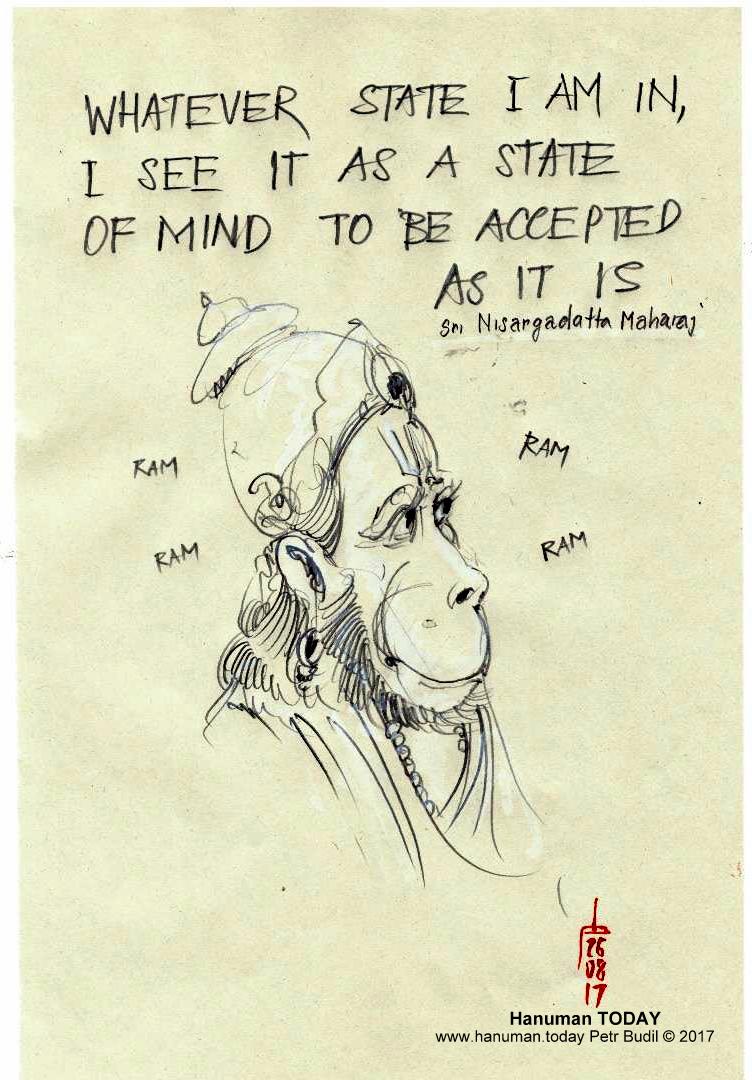 WHATEVER STATE I AM IN,
I SEE IT AS A STATE
OF MIND TO BE ACCEPTED
AS IT IS
Sri Nisargadatta Maharaj
RAM
RAM
RAM
RAM
26
08
17
Hanuman TODAY
www.hanuman.today Petr Budil © 2017